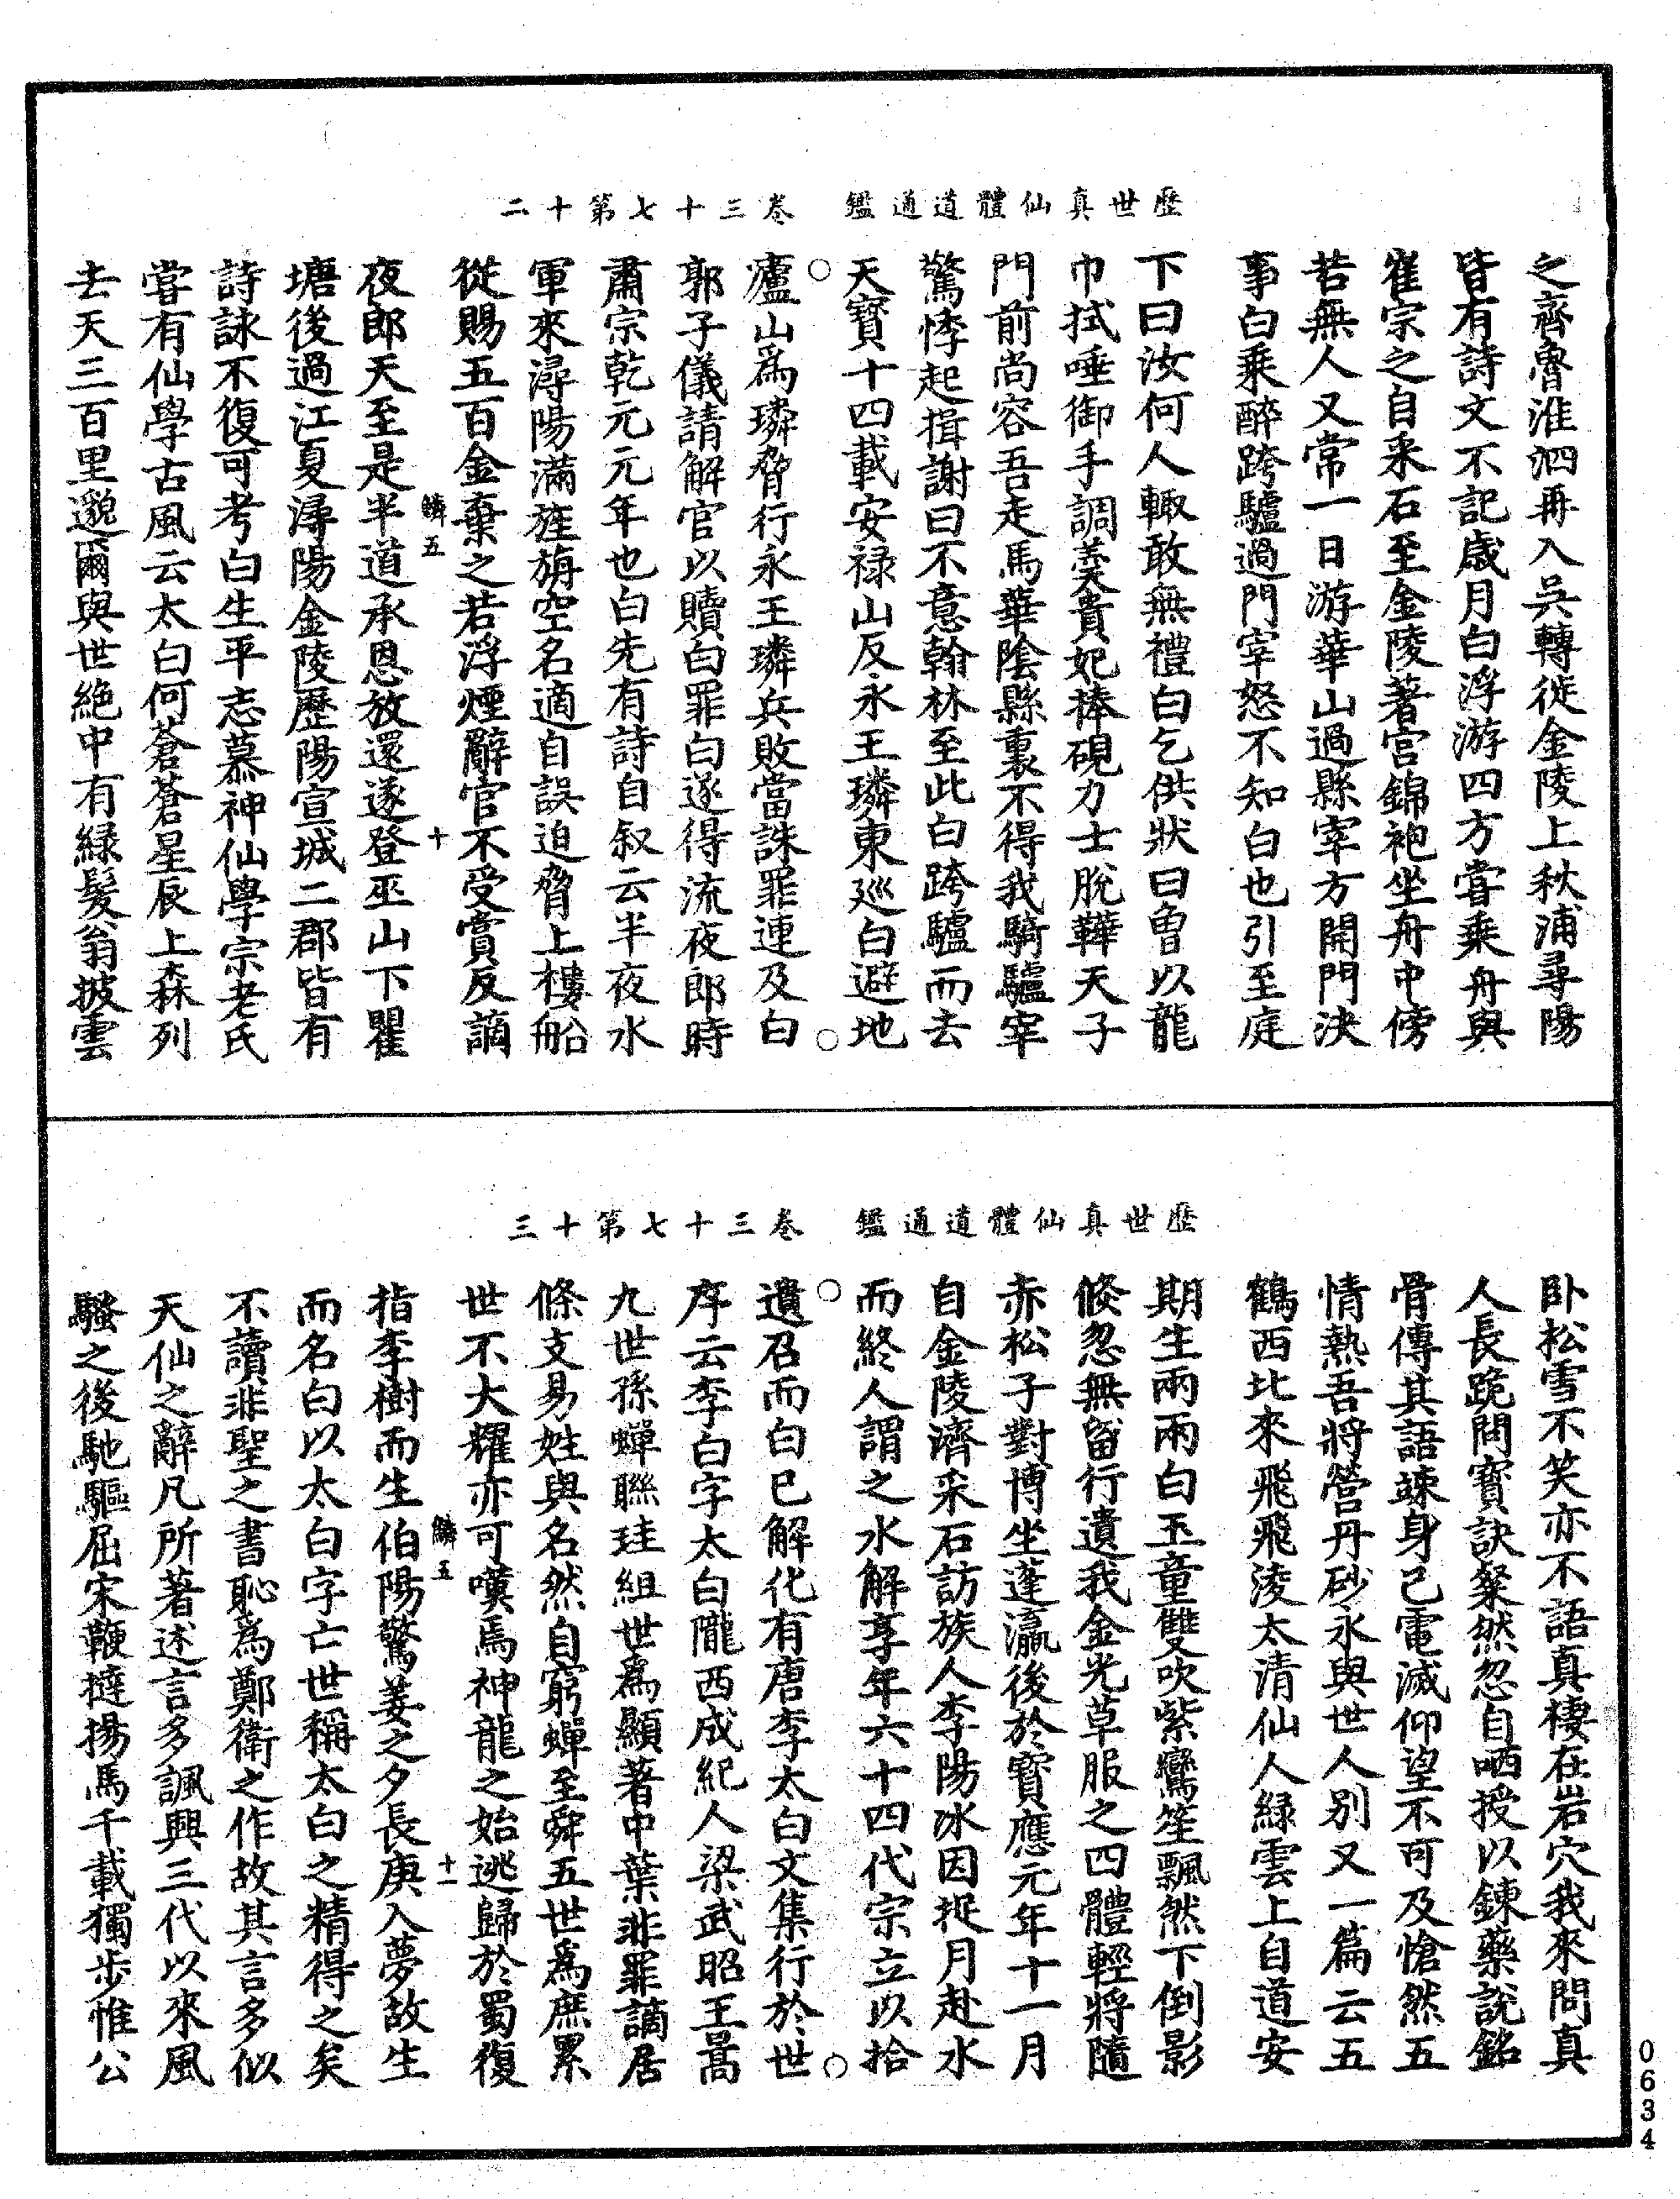 歷世真仙體道通鑑　卷三十七第十二
之齊魯淮泗再入吳轉徙金陵上秋浦尋陽
皆有詩文不記歲月白浮游四方嘗乗舟與
崔宗之自采石至金陵著宮錦袍坐舟中傍
若無人又常一日游華山過縣宰方開門決
事白乗醉跨驢過門宰怒不知白也引至庭
下曰汝何人輙敢無禮白乞供狀曰曽以龍
巾拭唾御手調羮貴妃捧硯力士脫鞾天子
門前尚容吾走馬華陰縣裏不得我騎驢宰
驚悸起揖謝曰不意翰林至此白跨驢而去
天寶十四載安祿山反永王璘東巡白避地
○廬山爲璘脅行永王璘兵敗當誅罪連及白○
郭子儀請解官以贖白罪白遂得流夜郎時
肅宗乾元元年也白先有詩自叙云半夜水
軍來潯陽滿旌旃空名適自誤迫脅上樓船
從賜五百金棄之若浮煙辭官不受賞反謫
鱗五　十
夜郎天至是半道承恩放還遂登巫山下瞿
塘後過江夏潯陽金陵歷陽宣城二郡皆有
詩詠不復可考白生平志慕神仙學宗老氏
嘗有仙學古風云太白何蒼蒼星辰上森列
去天三百里邈爾與世絶中有緑髮翁披雲
歷世真仙體道通鑑　卷三十七第十三
卧松雪不笑亦不語真棲在岩穴我來問真
人長跪問寶訣粲然忽自哂授以鍊藥說銘
骨傳其語竦身已電滅仰望不可及愴然五
情熱吾將營丹砂永與世人別又一篇云五
鶴西北來飛飛淩太清仙人緑雲上自道安
期生兩兩白玉童雙吹紫鸞笙飄然下倒影
倐忽無留行遺我金光草服之四體輕將隨
赤松子對博坐蓬瀛後於寶應元年十一月
自金陵濟采石訪族人李陽冰因捉月赴水
而終人謂之水解享年六十四代宗立以拾
○遺召而白已解化有唐李太白文集行於世○
序云李白字太白隴西成紀人梁武昭王暠
九世孫蟬聯珪組世爲顯著中葉非罪謫居
條支易姓與名然自窮蟬至舜五世爲庶累
世不大耀亦可嘆焉神龍之始逃歸於蜀復
鱗五　十一
指李樹而生伯陽驚姜之夕長庚入夢故生
而名白以太白字亡世稱太白之精得之矣
不讀非聖之書恥為鄭衛之作故其言多似
天仙之辭凡所著述言多諷興三代以來風
騷之後馳驅屈宋鞭撻揚馬千載獨步惟公
0634